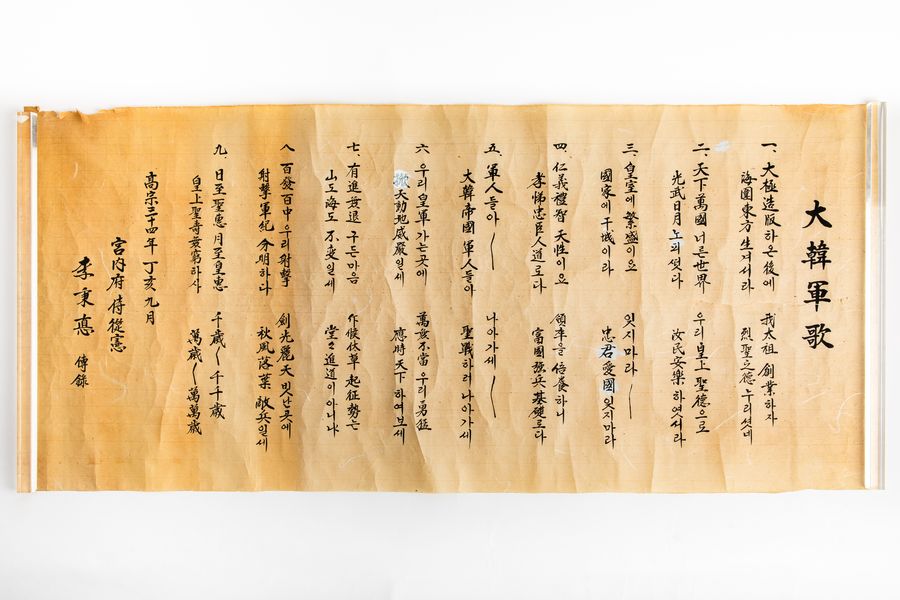 大韓軍歌
一. 大極造版하온後에 我太祖 創業하자
海圍東方 生겨서라 烈聖之德 누리셧네
二. 天下萬國 너른世界 우리皇上 聖德으로
光武日月 노피떳다 汝民安樂 하엿서라
三. 皇室에 繁盛이요 잇지마라 ―
國家에 干城이라 忠君愛國 잇지마라
四. 仁義禮智 天性이요 領率을 倍養하니
孝悌忠臣 人道로다 富國强兵 基礎로다
五. 軍人들아 ― 나아가세 ―
大韓帝國 軍人들아 聖戰하려 나아가세
六. 우리皇軍 가는곳에 萬夫不當 우리勇猛
天動地 威嚴일세 應時天下 하여보세
七. 有進無退 구든마음 作候休草 起征勢는
山도海도 不変일세 堂々進道이아니냐
八 百發百中 우리射擊 劍光麗天 빗난곳에
射擊軍紀 分明하다 秋風落葉 敵兵일세
九. 日至聖惠 月至皇惠 千歲― 千千歲
皇上聖壽 無窮하사 萬歲― 萬萬歲
高宗三十四年 丁亥 九月
宮內府 侍從 憲
李秉悳 傳錄